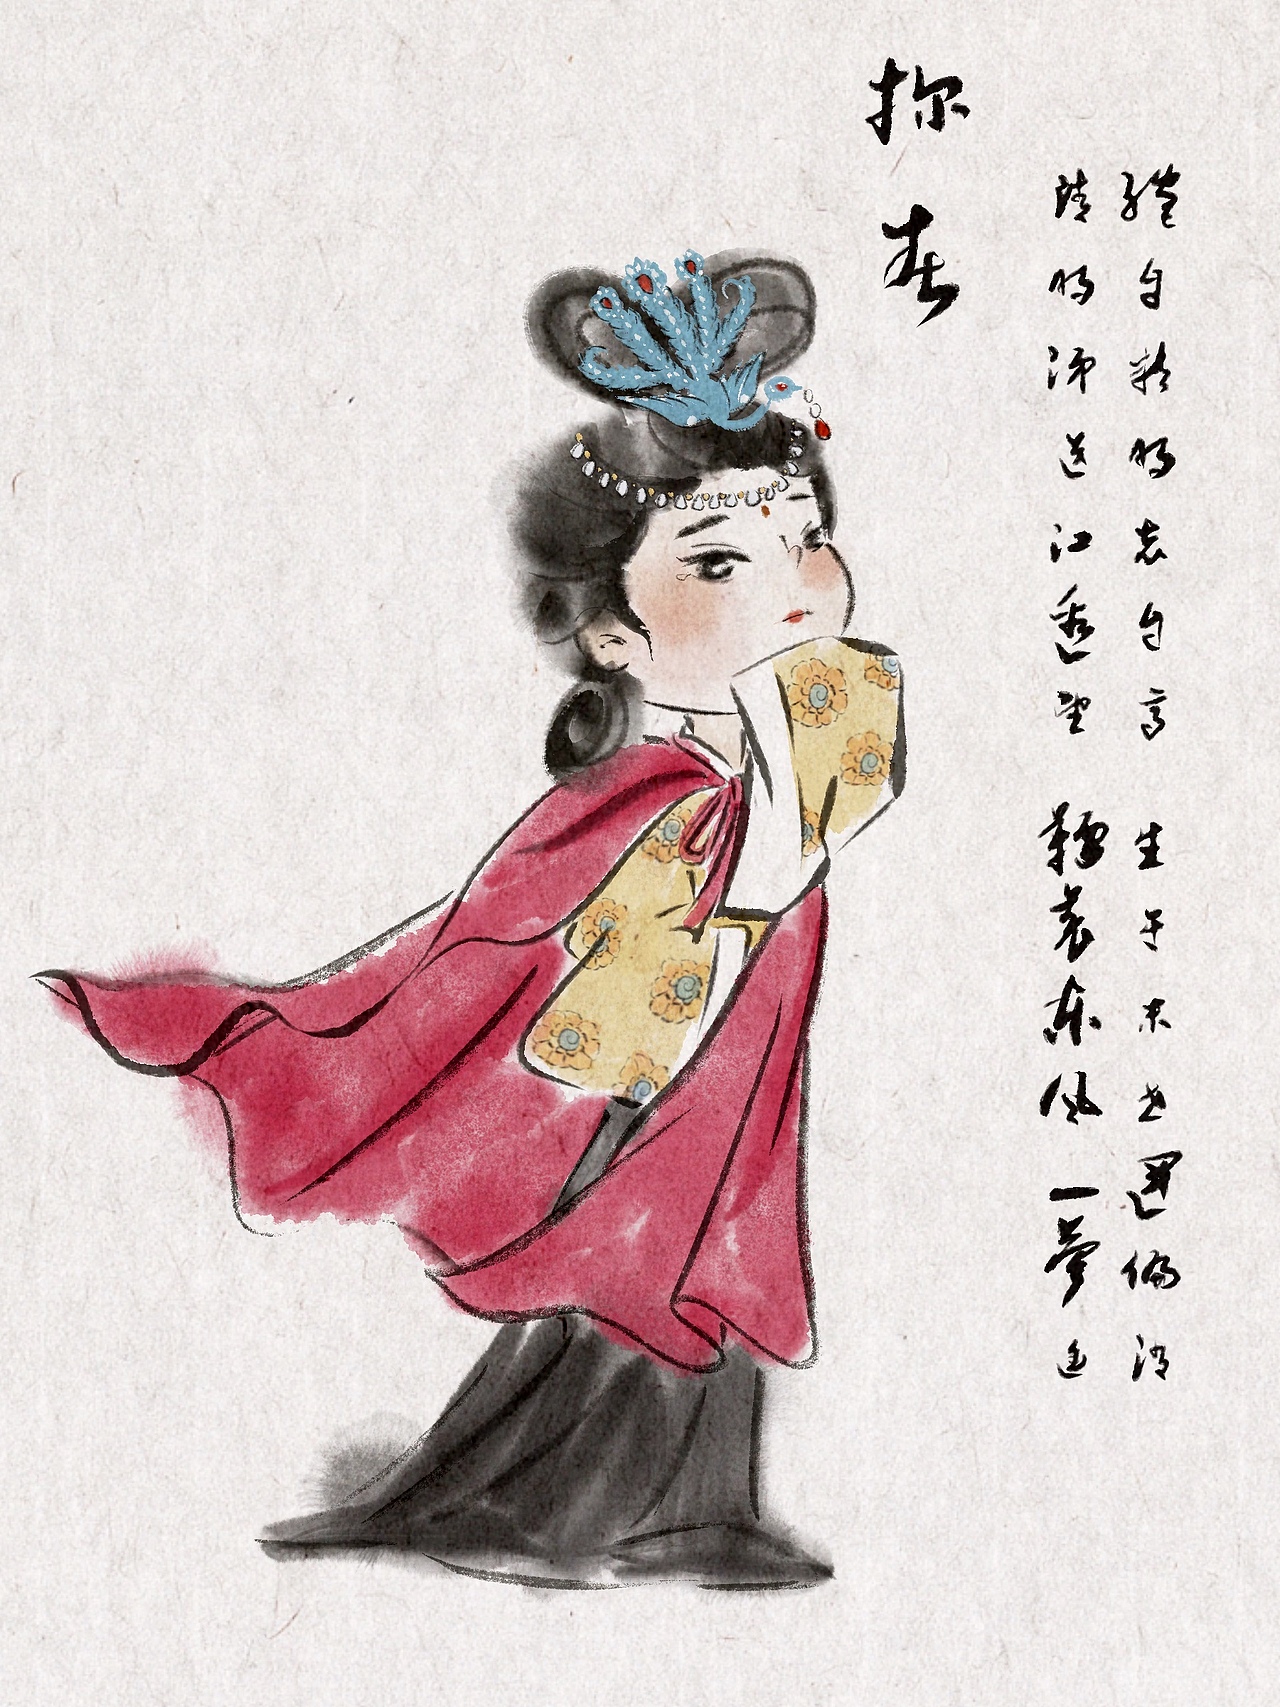 探春
纔自精明志自高 生于末世運偏消
清明涕送江邊望 韆裏东风一夢遥